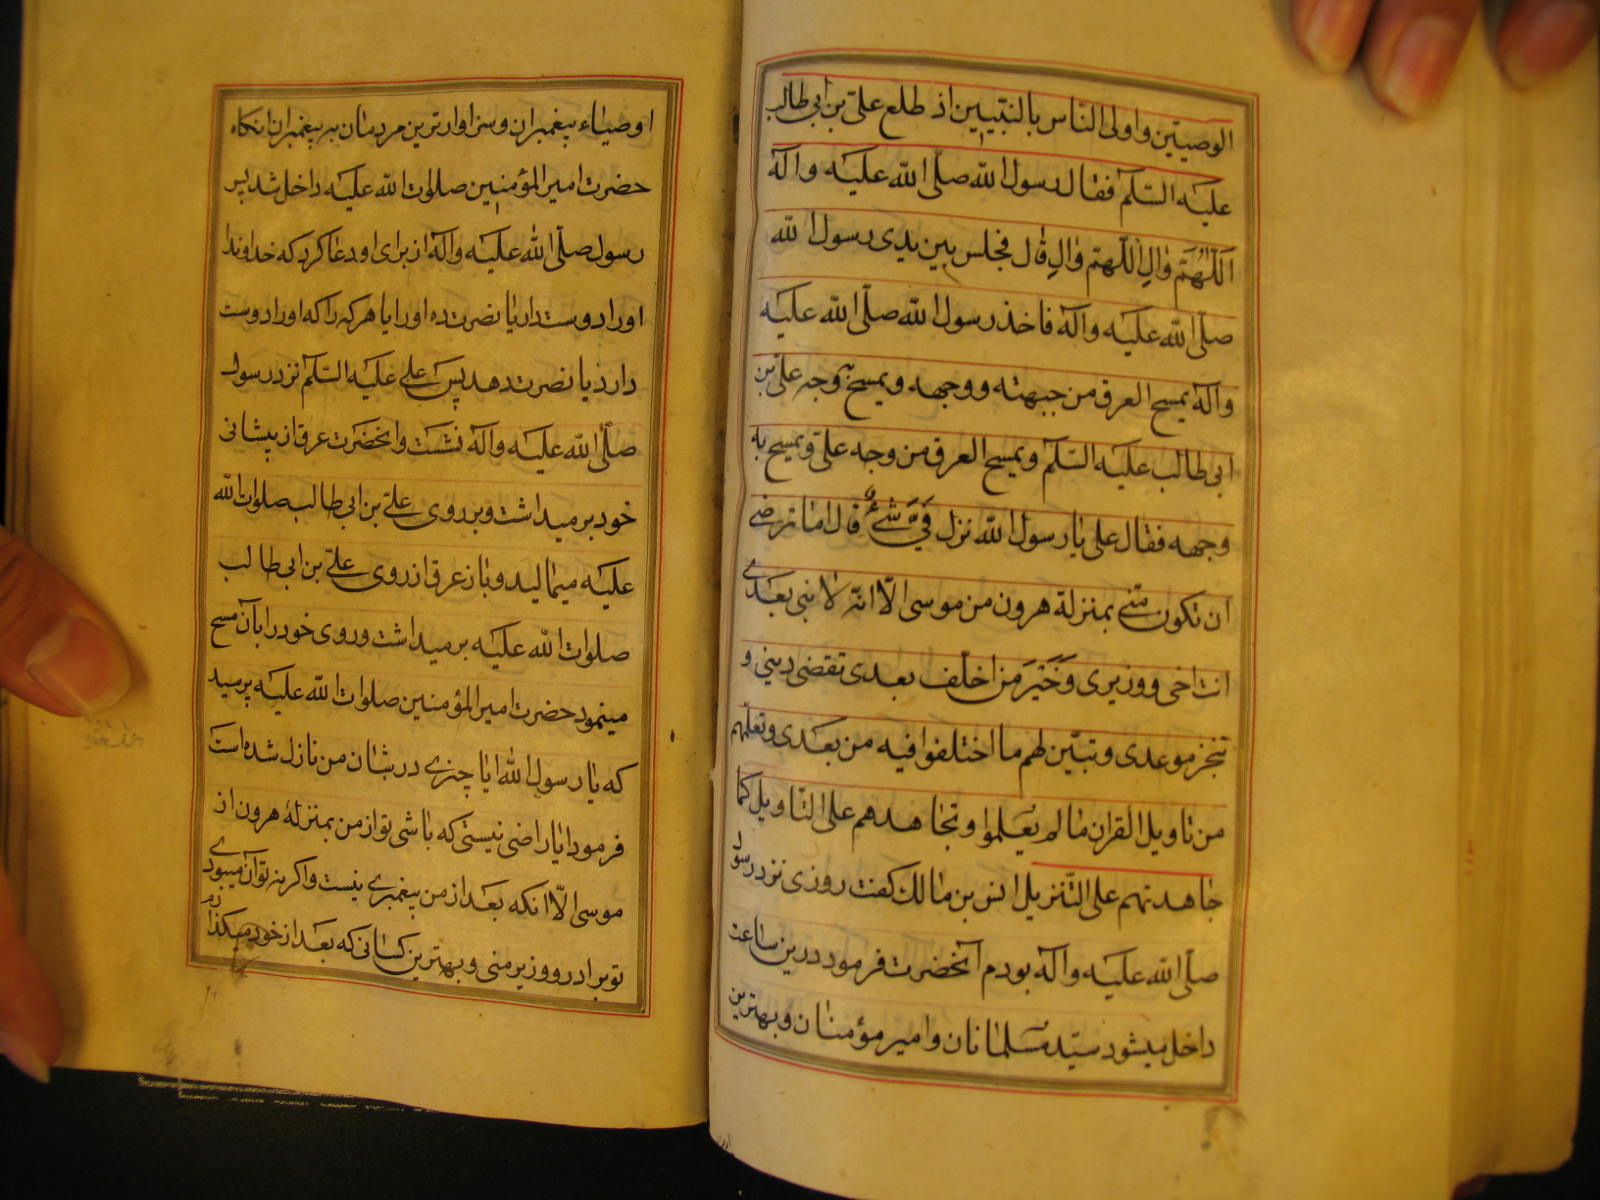 الوصيّين و اولى الناس بالنبيّين اذ طلع علىّ بن ابى طالب
عليه السّلم فقال رسول الله صلّى الله عليه و اله
اللّهمّ وال اللّهمّ وال قال فجلس بين يدى رسول الله
صلّى الله عليه و اله فاخذ رسول الله صلّى الله عليه
و اله يمسح العرق من جبهته و وجهه و يمسح به وجه علىّ بن
ابى طالب عليه السّلم و يمسح العرق من وجه علىّ و يمسح به
وجهه فقال على يا رسول الله نزل فىّ شئ قال اما ترضى
ان تكون منّى بمنزلة هرون من موسى الّا انّه لا نبى بعدى
انت اخى و وزيرى و خَيْرَ من اخلّف بعدى تقضى دينى و
تنجز موعدى و تبيّن لهم ما اختلفوا فيه من بعدى و تعلّمهم
من تاويل القران ما لم يعلموا و تجاهدهم على التّاويل كما
جاهدتهم على التّنزيل انس بن مالك كفت روزى نزد رسول
صلّى الله عليه و اله بودم آنحضرت فرمود درين ساعت
داخل ميشود سيّد مسلمانان و امير مؤمنان و بهترين
اوصياء پيغمبران و سزاوارترين مردمان به پيغمبران انكاه
حضرت امير المؤمنين صلوات الله عليه داخل شد پس
رسول صلّى الله عليه و اله از براى او دعا كرد كه خداوندا
او را دوست دار يا نصرت ده او را يا هر كه را كه او را دوست
دارد يا نصرت دهد پس على عليه السّلم نزد رسول
صلّى الله عليه و اله نشست و انحضرت عرق از پيشانى
خود بر ميداشت و بر روى علىّ بن ابى طالب صلوات الله
عليه ميماليد و باز عرق از روى علىّ بن ابى طالب
صلوات الله عليه بر ميداشت و روى خود را بآن مسح
مينمود حضرت امير المؤمنين صلوات الله عليه پرسيد
كه يا رسول الله ايا چيزى در شان من نازل شده است
فرمود ايا راضى نيستى كه باشى تو از من بمنزلهٔ هرون از
موسى الّا انكه بعد از من پيغمبرى نيست و اكر نه تو آن ميبودى
تو برادر و وزير منى و بهترين كسانى كه بعد از خود ميكذارم